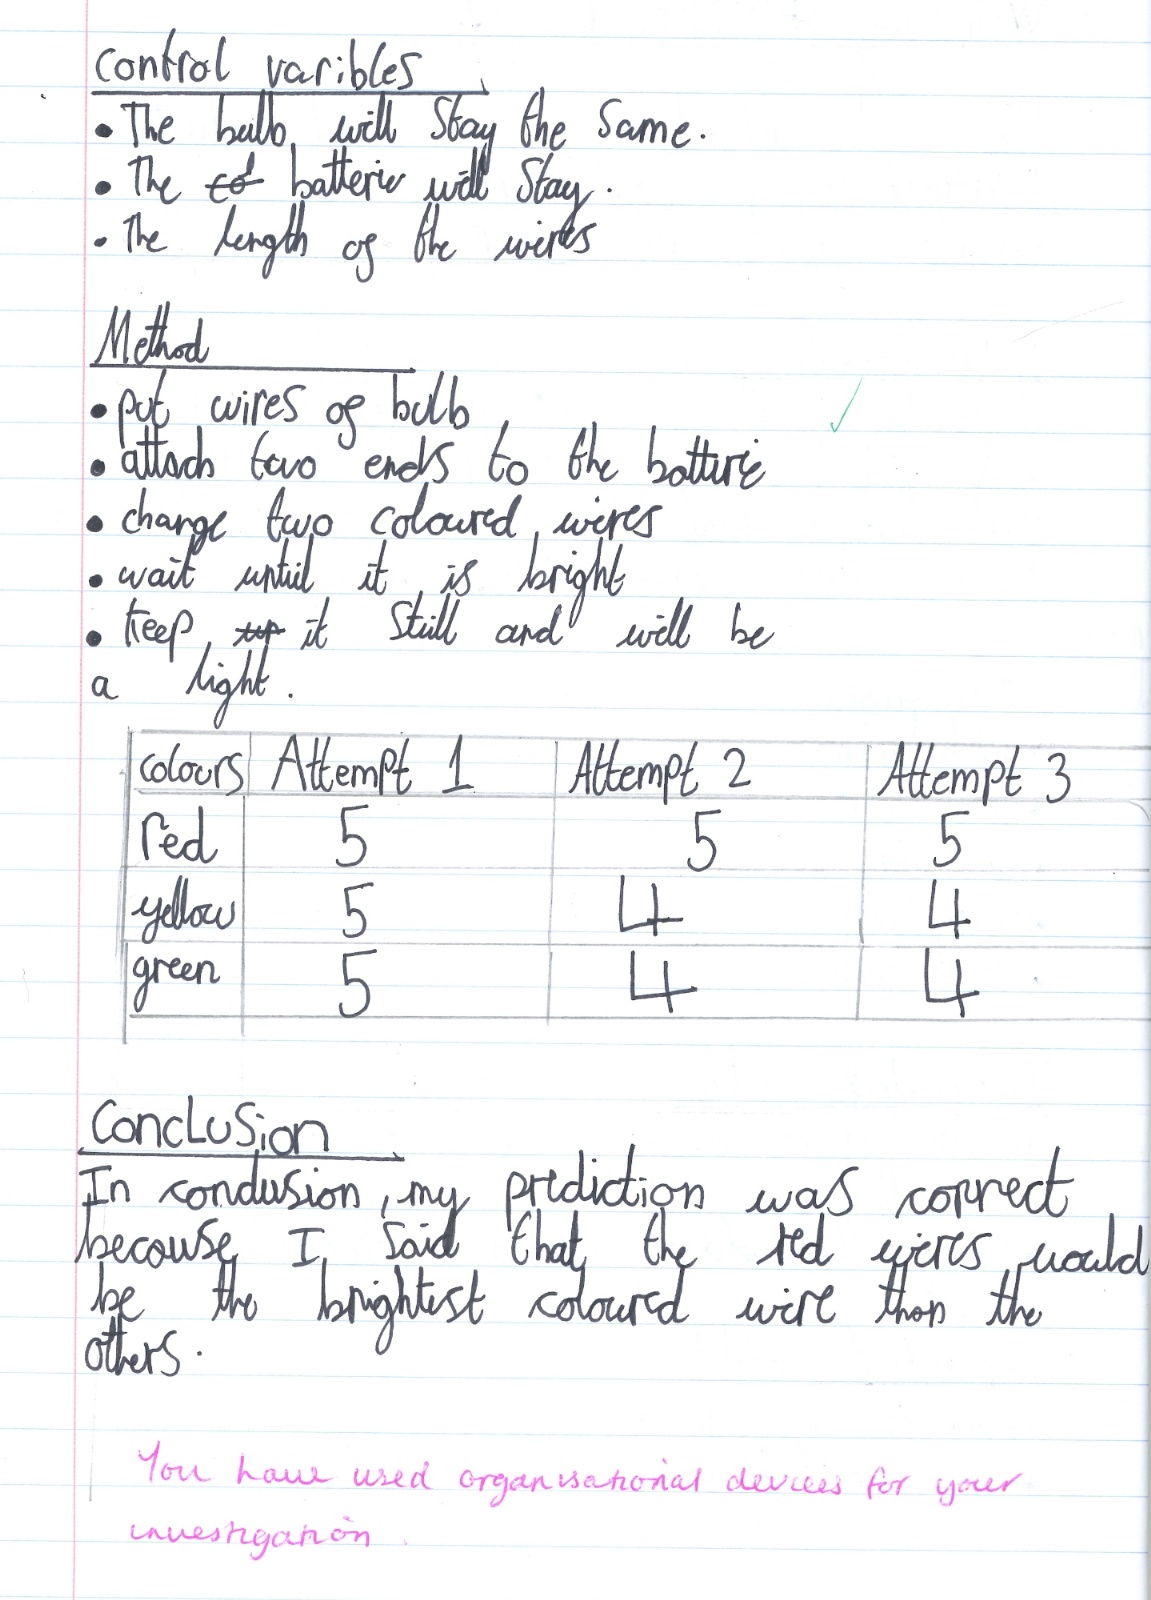 control varibles
• The bulb will stay the same.
• The batterie will stay.
• The length of the wires
Method
• put wires of bulb
• attach two ends to the batturie
• change two coloured wires
• wait untiil it is bright
• keep it still and will be
a light.
colours Attempt 1 Attempt 2 Attempt 3
red 5 5 5
yellow 5 4 4
green 5 4 4
Conclusion
In conclusion, my prediction was correct
because I said that the red wires would
be the brightest coloured wire than the
others.
You have used organisational devices for your
investigation.